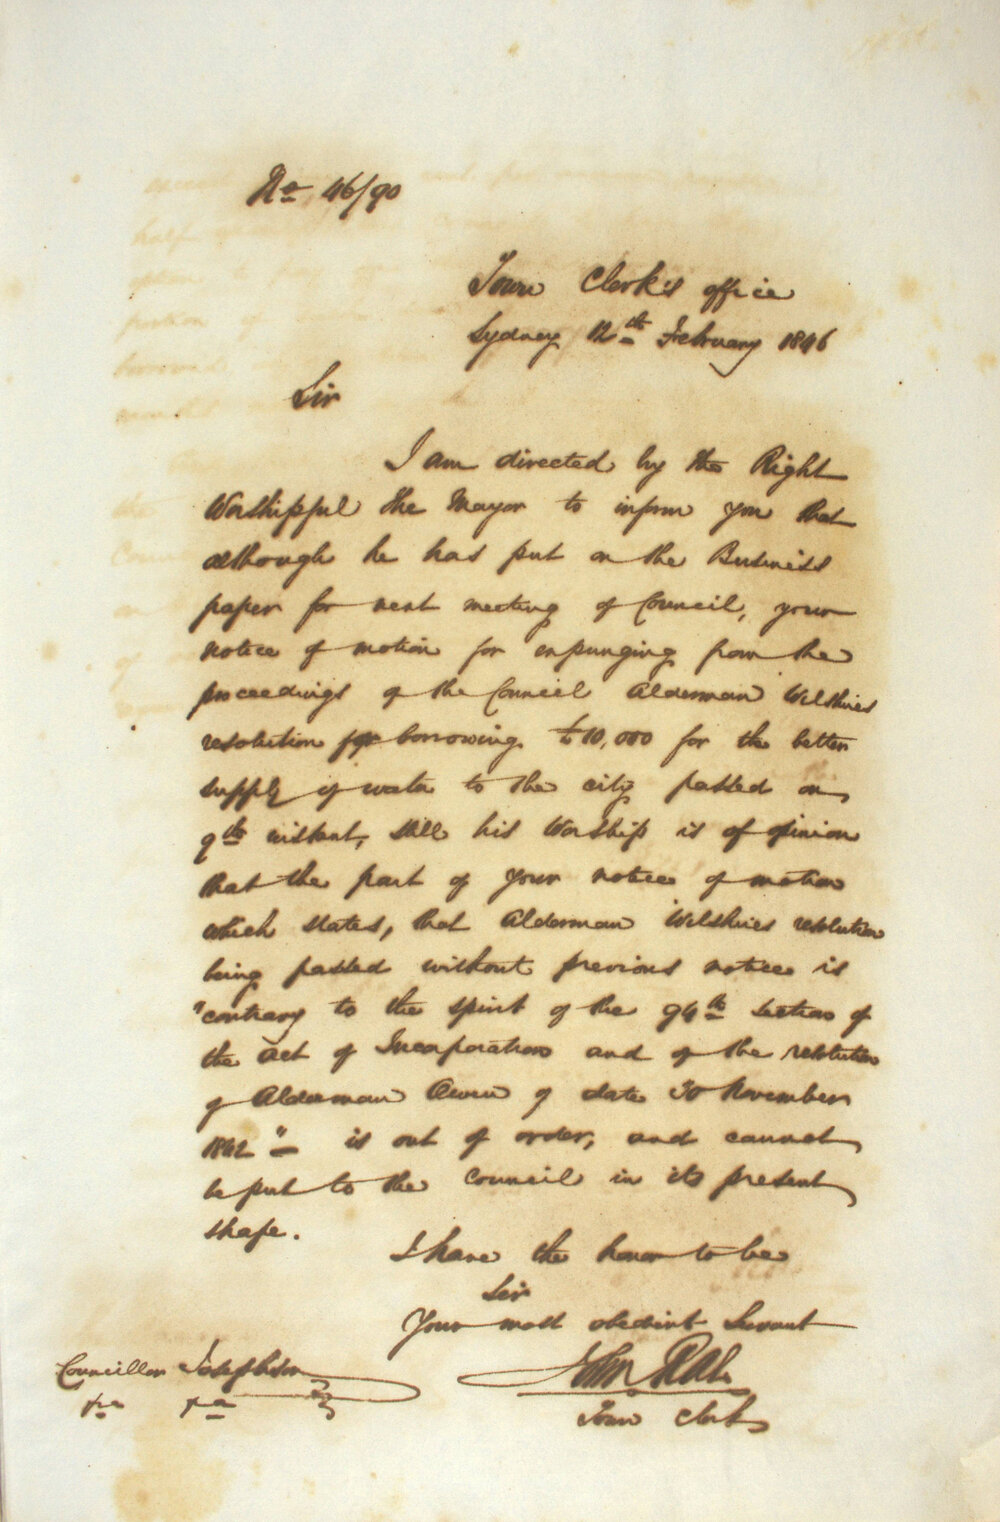 No 46/90
Town Clerk's office
Sydney 12th February 1846
Sir
I am directed by the Right
Worshipful the Mayor to inform you that
although he has put on the Business
paper for next meeting of Council, your
notice of motion for expunging from the
proceedings of the Council Alderman Wilshires
resolution for borrowing £10,000 for the better
supply of water to the city passed on
9th instant, still his Worship is of opinion
that the part of your notice of motion
which states, that Alderman Wilshires resolution
being passed without previous notice is
"contrary to the spirit of the 94th section of
the act of Incorporation and of the resolution
of Alderman Owen of date 30 November
1842" is out of order, and cannot
be put to the Council in its present
shape.
I have the honor to be
Sir
Your most obedient Servant
John Rae
Town Clerk
Councillor Josephson